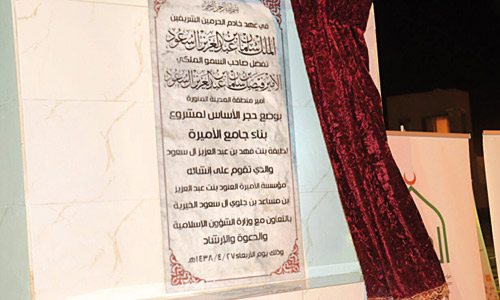 بسم الله الرحمن الرحيم
في عهد خادم الحرمين الشريفين
الملك سلمان بن عبدالعزيز آل سعود
تفضل صاحب السمو الملكي
الأمير فيصل بن سلمان بن عبدالعزيز آل سعود
أمير منطقة المدينة المنورة
بوضع حجر الأساس لمشروع
بناء جامع الأميرة
لطيفة بنت فهد بن عبد العزيز آل سعود
والذي تقوم على إنشائه
مؤسسة الأميرة العنود بنت عبد العزيز
ابن مساعد بن جلوي آل سعود الخيرية
بالتعاون مع وزارة الشؤون الإسلامية
والدعوة والإرشاد
وذلك يوم الأربعاء ١٤٣٨/٤/٢٧هـ